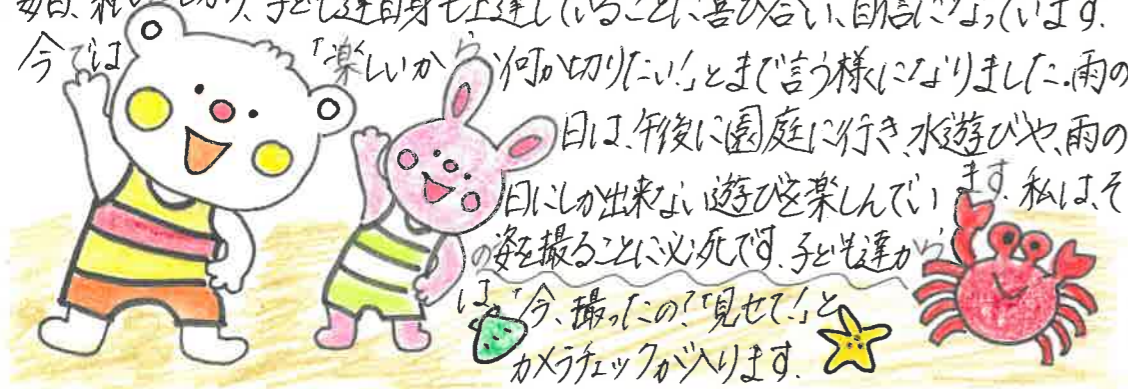 子ども達自身も上達していることに喜び合い、自信になっています.
今では「楽しいから何か切りたい!」とまで言う様になりました.雨の
日は、午後に園庭に行き、水遊びや、雨の
日にしか出来ない遊びを楽しんでいます.私は、そ
の姿を撮ることに必死です.子ども達から
は「今、撮ったの?」「見せて!」と
カメラチェックが入ります.